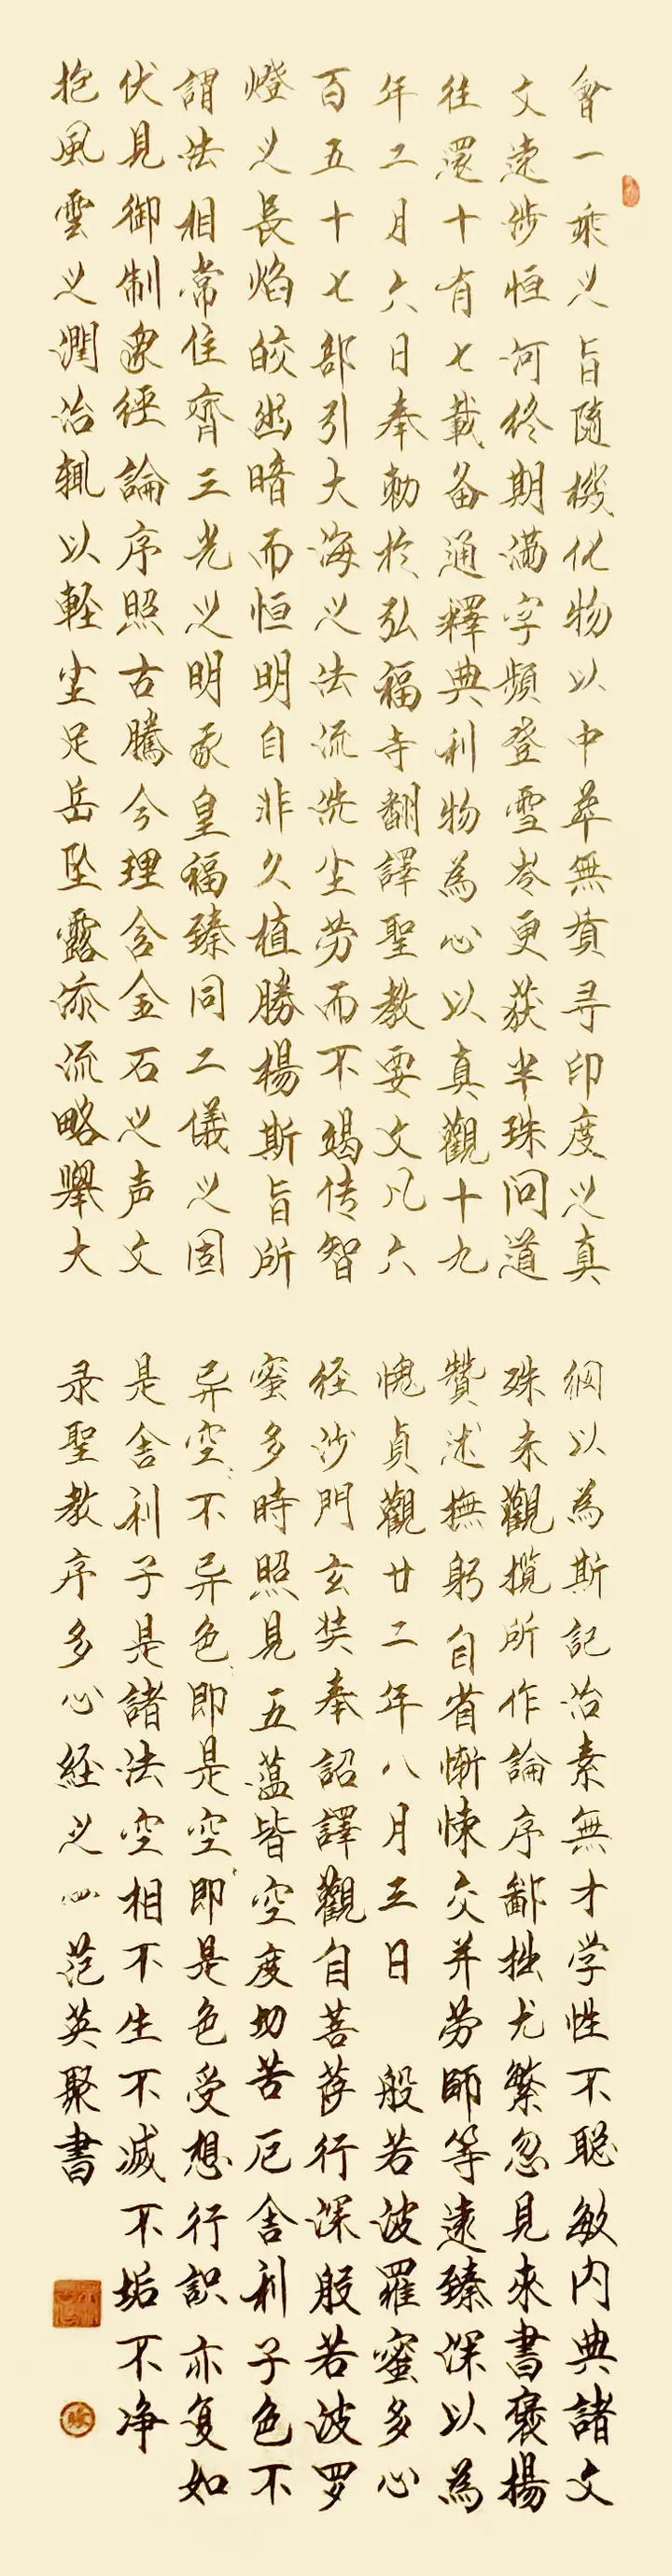 會一乘之旨隨機化物以中華無質尋印度之真
文遠涉恒河終期滿字頻登雪岑更獲半珠問道
往還十有七載备通釋典利物為心以真觀十九
年二月六日奉勅於弘福寺翻譯聖教要文凡六
百五十七部引大海之法流洗尘劳而不竭传智
燈之長焰皎幽暗而恒明自非久植勝楊斯旨所
謂法相常住齊三光之明我皇福臻同二儀之固
伏見御制衆經論序照古騰今理含金石之声文
抱風雲之潤治輒以輕尘足岳坠露添流略舉大
綱以為斯記治素無才学性不聪敏内典諸文
殊未觀揽所作論序鄙拙尤繁忽見來書褒揚
贊述撫躬自省慚悚交并劳師等遠臻深以為
愧貞觀廿二年八月三日 般若波羅蜜多心
径沙門玄奘奉詔譯觀自菩萨行深般若波罗
蜜多時照見五蕴皆空度切苦厄舍利子色不
异空不异色即是空即是色受想行識亦复如
是舍利子是諸法空相不生不滅不垢不净
录聖教序多心經之四范英聚書